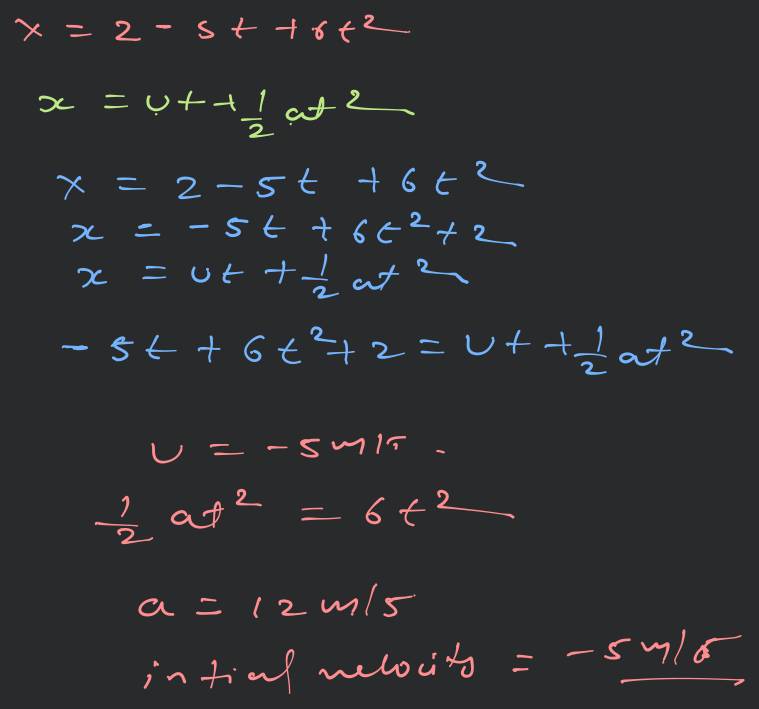 x = 2 - 5t + 6t²
x = ut + 1/2 at²
x = 2 - 5t + 6t²
x = -5t + 6t² + 2
x = ut + 1/2 at²
- 5t + 6t² + 2 = ut + 1/2 at²
u = -5 m/s .
1/2 at² = 6t²
a = 12 m/s
intial velocity = -5 m/s